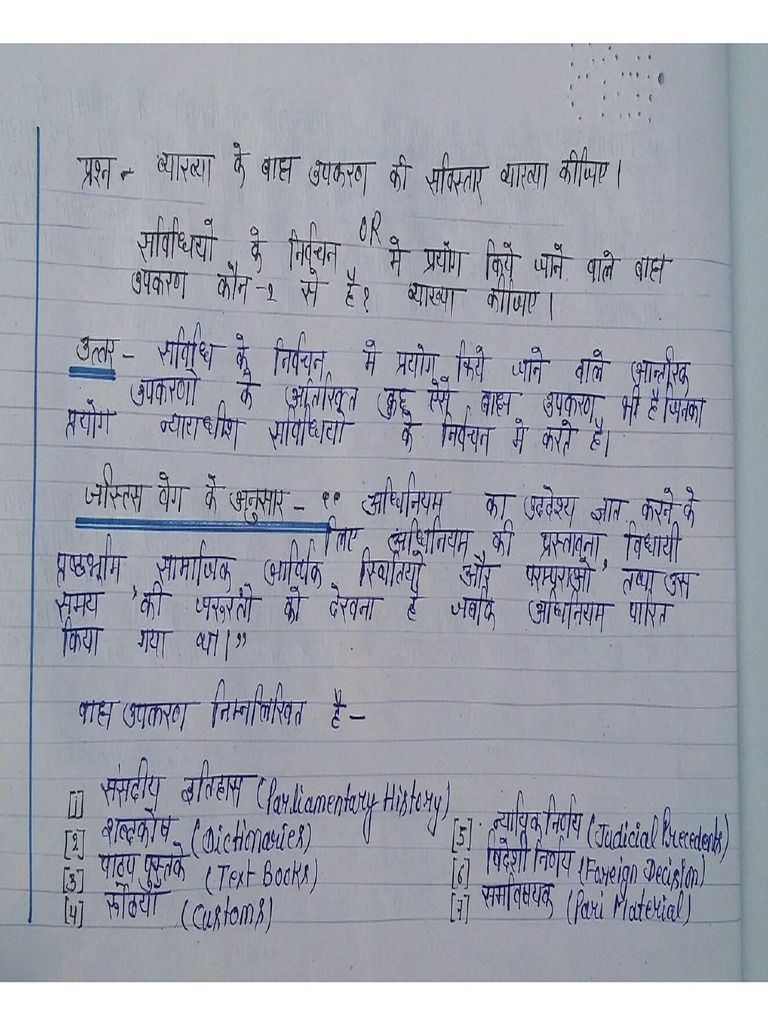 प्रश्न - व्याख्या के बाह्य उपकरण की सविस्तार व्याख्या कीजिए।
OR
सविधियो के निर्वचन मे प्रयोग किये जाने वाले बाह्य
उपकरण कौन-२ से है? व्याख्या कीजिए।
उत्तर - सविधि के निर्वचन मे प्रयोग किये जाने वाले आन्तरिक
उपकरणो के अतिरिक्त कुछ ऐसे बाह्य उपकरण भी है जिनका
प्रयोग न्यायाधीश सविधियो के निर्वचन मे करते है।
जस्टिस वेग के अनुसार - "अधिनियम का उददेश्य ज्ञात करने के
लिए अधिनियम की प्रस्तावना, विधायी
प्रष्ठभूमि सामाजिक आर्थिक स्थितियो और परम्पराओ, तथा उस
समय की जरूरतो को देखना है जबकि अधिनियम पारित
किया गया था।"
बाह्य उपकरण निम्नलिखित है -
[1] संसदीय इतिहास (Parliamentary History)
[2] शब्दकोष (Dictionaries)
[3] पाठय पुस्तके (Text Books)
[4] रूढियो (Customs)
[5] न्यायिक निर्णय (Judicial Precedents)
[6] विदेशी निर्णय (Foreign Decision)
[7] समविषयक (Pari Material)